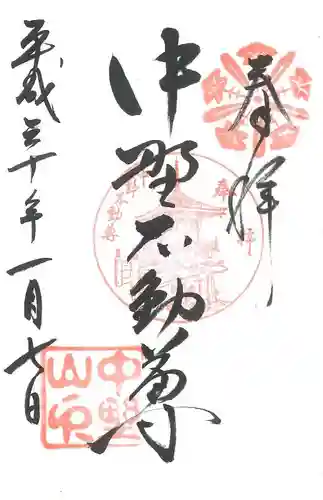 奉拝
中野不動尊
平成三十年一月七日